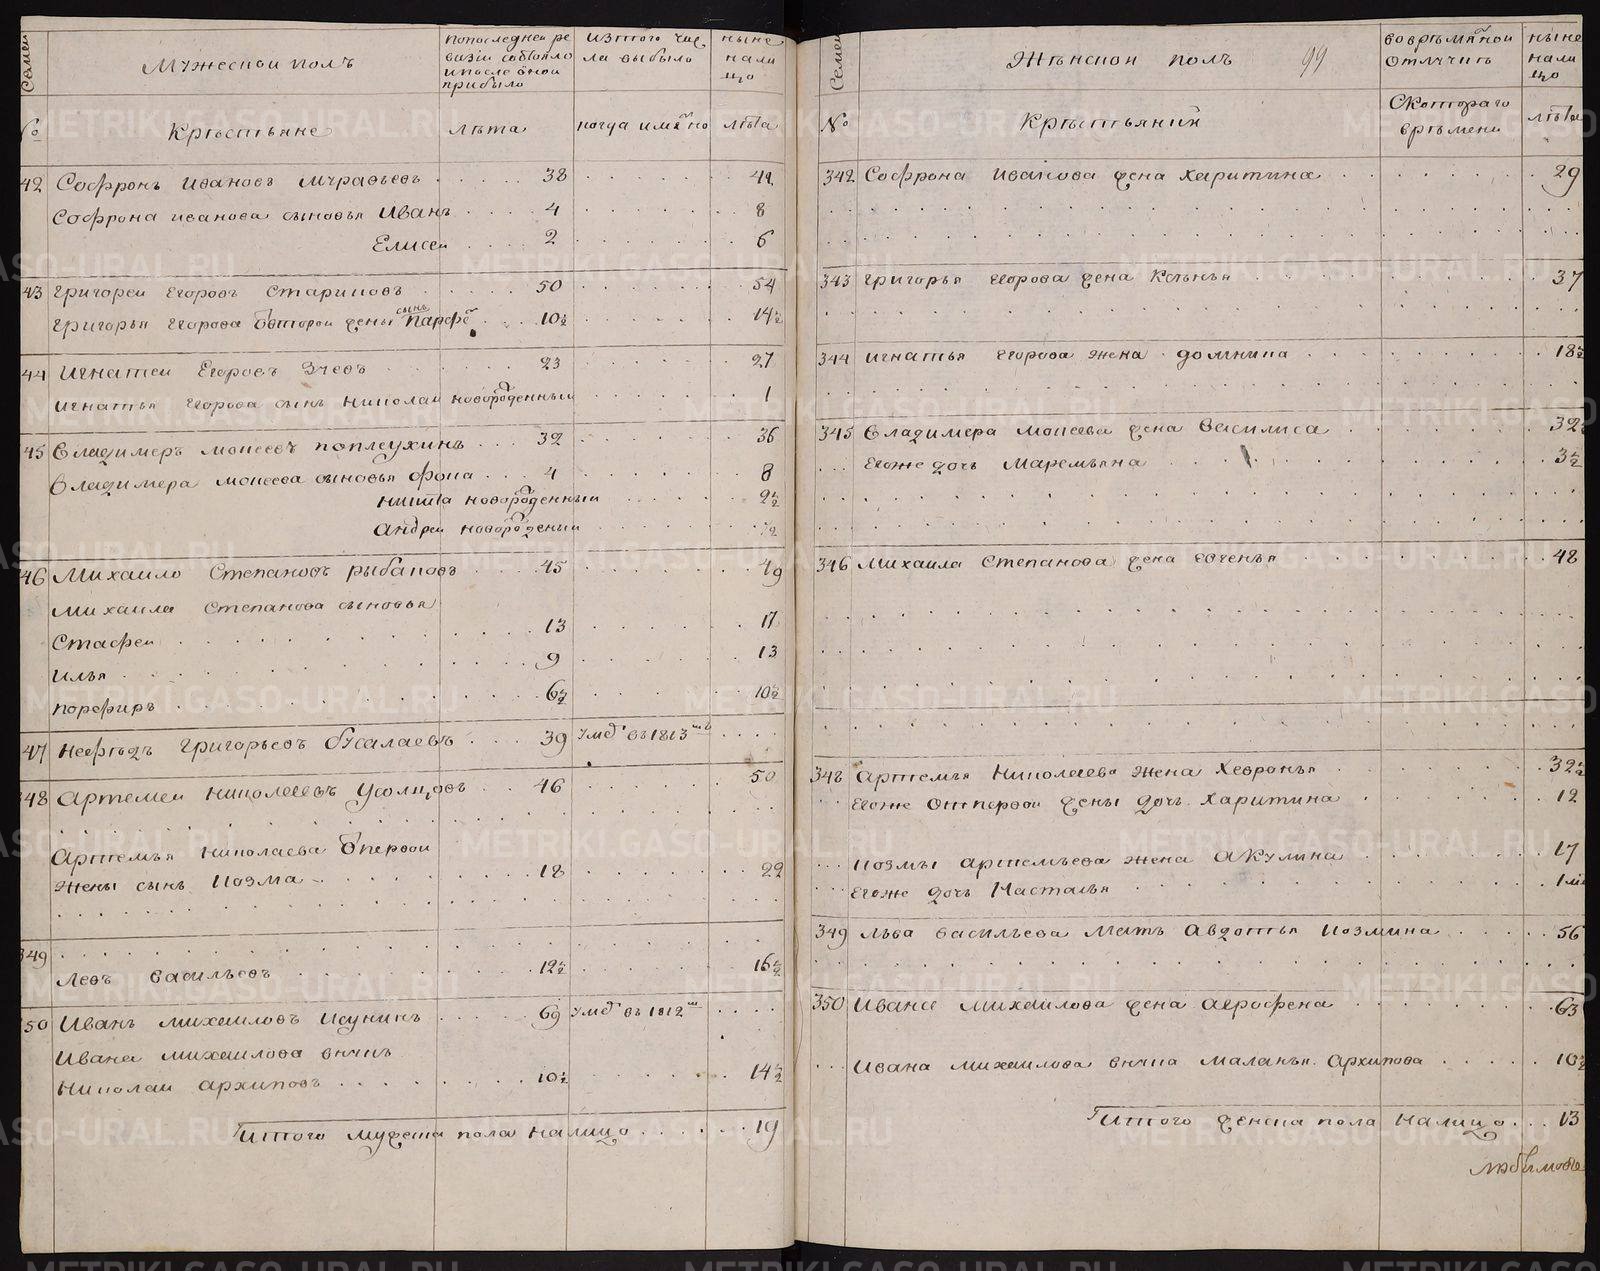 Семеи
Мужескои полъ
попоследнеи ре
визiи состояло
ипосле оной
прибыло
изтого чис
ла выбыло
ныне
нали
цо
№
Крѣстьяне
лѣта
когда имянно
лѣта
42 Софронъ Ивановъ Муравьевъ 38
Софрона иванова сыновья Иванъ 4 8
Елисеи 2 6
43 Григореи Егоровъ Стариковъ 50 54
Григорья Егорова отвторои жены сынъ Парфе 10½ 14½
44 Игнатеи Егоровъ Зуевъ 23 27
Игнатья Егорова сынъ Николаи новорожденныи 1
45 Владимеръ моисеевъ поплеухинъ 32 36
Владимера моисеева сыновья фока 4 8
никита новорожденныи 2½
андреи новорожденыи ½
46 Михаило Степановъ рыбаковъ 45 49
Михаила Степанова сыновья
Стафеи 13 17
илья 9 13
порфиръ 6½ 10½
47 Нефедъ Григорьевъ бусалаевъ 39 умѣ въ 1813мъ
348 Артемеи николаевъ Усолцовъ 46 50
Артемья николаева отпервои
жены сынъ Козма 18 22
349
Левъ васильевъ 12½ 16½
350 Иванъ михаиловъ Кунинъ 69 умѣ въ 1812м
Ивана михаилова внукъ
Николаи архиповъ 10½ 14½
Итого мужеска пола налицо 19
Семеи
Женскои полъ 99
во врѣмяннои
отлучкѣ
ныне
нали
цо
№
Крѣстьянки
Скотораго
врѣмени
лѣта
342 Софрона Иванова жена харитина 29
343 григорья егорова жена Ксѣнья 37
344 игнатья егорова жена домнина 18½
345 Владимера моисеева жена Василиса 32
Егоже дочь Маремьяна 3½
346 Михаила Степанова жена евгенья 48
348 Артемья Николаева жена Хевронья 32½
Егоже отпервои жены дочь Харитина 12
Козмы артемьева жена Акулина 17
Егоже дочь Настасья
349 Льва васильева мать Авдотья Козмина 56
350 Ивана михаилова жена агрофена 63
Ивана михаилова внука маланья Архипова 10½
Итого женска пола налицо 13
METRIKI.GASO-URAL.RU